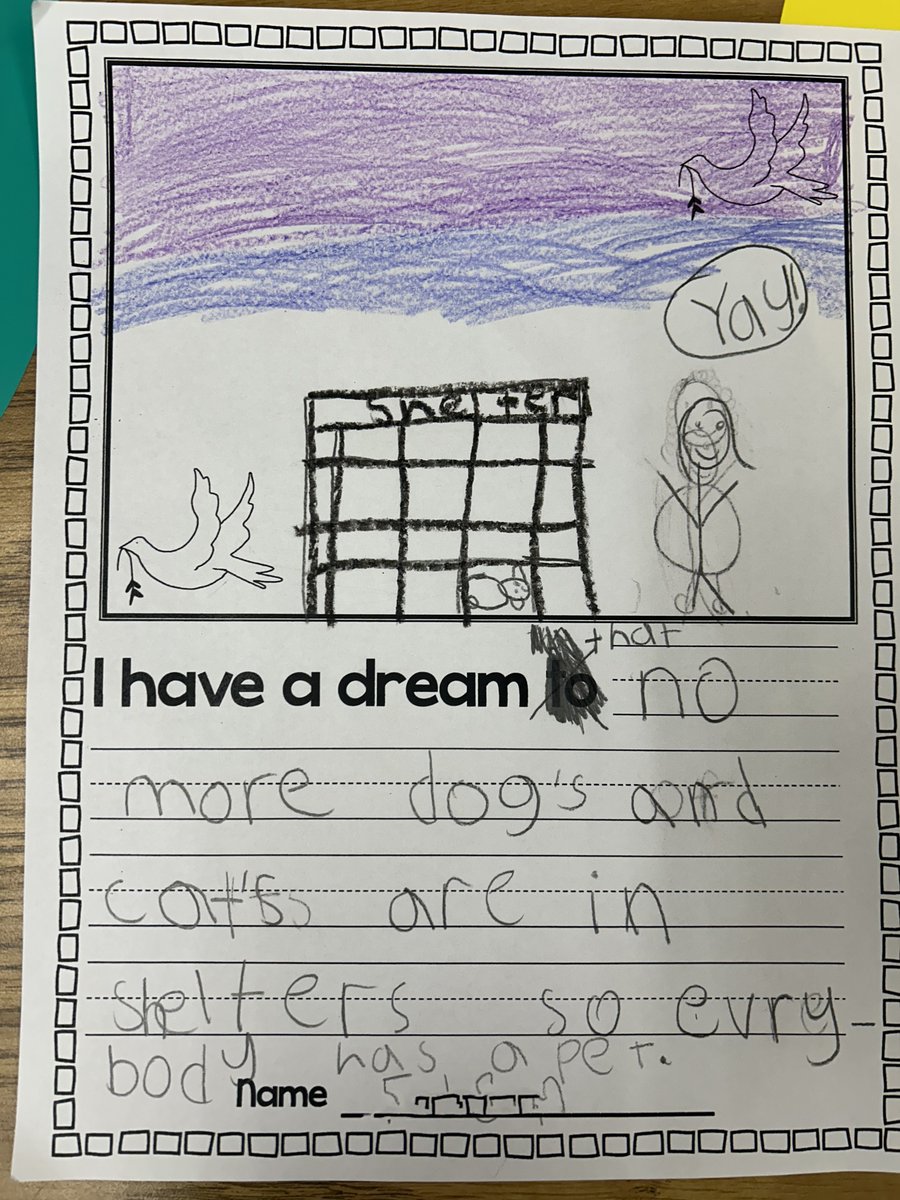 Yay!
shelter
that
I have a dream to no
more dog's and
cat's are in
shelters so evry-
body has a pet.
Name